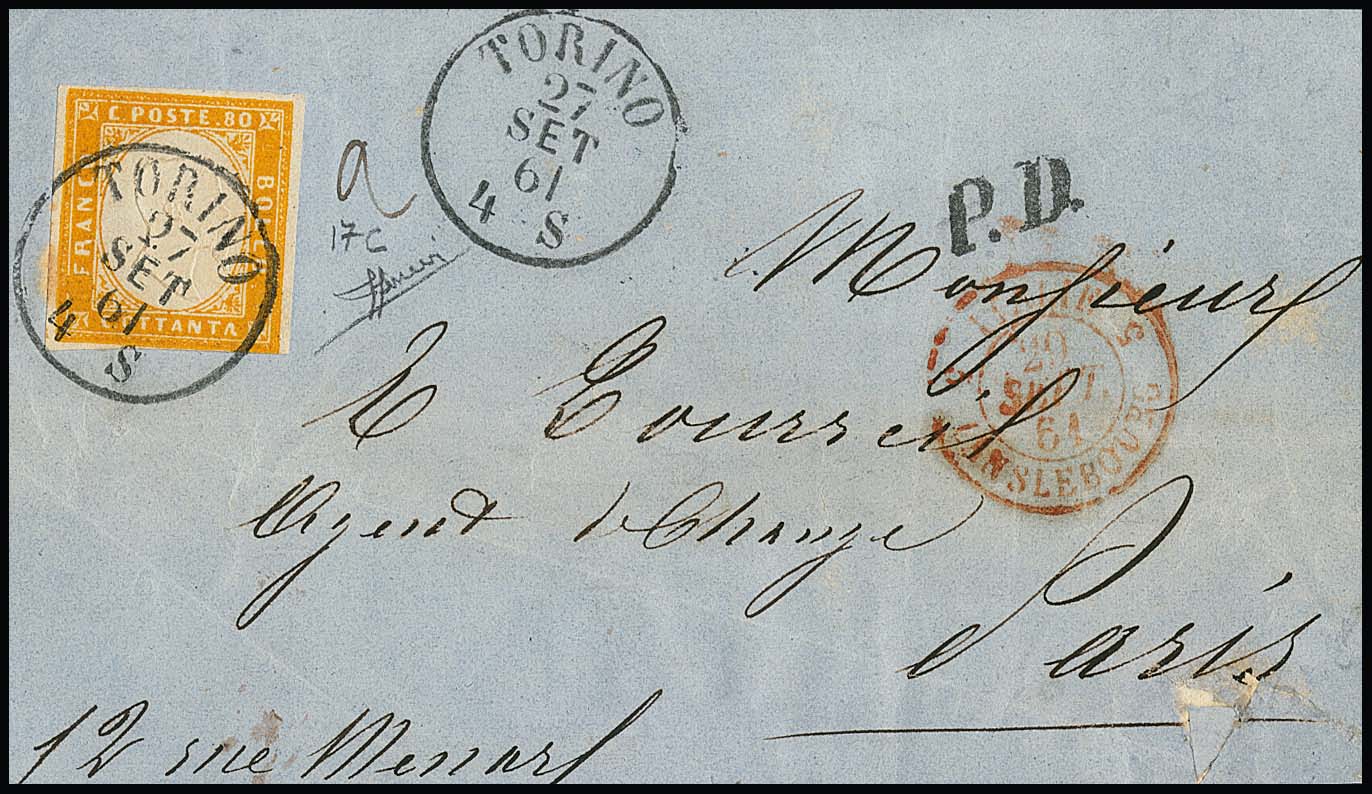 C. POSTE. 80
FRANCO
BOLLO
C. OTTANTA
TORINO
27
SET
61
4 S
TORINO
27
SET
61
4 S
a
17c
P.D.
5 5
29
SEPT.
61
LANSLEBOURG
Monsieur
E Gourreil
Agent d Change
Paris
12 rue Menars